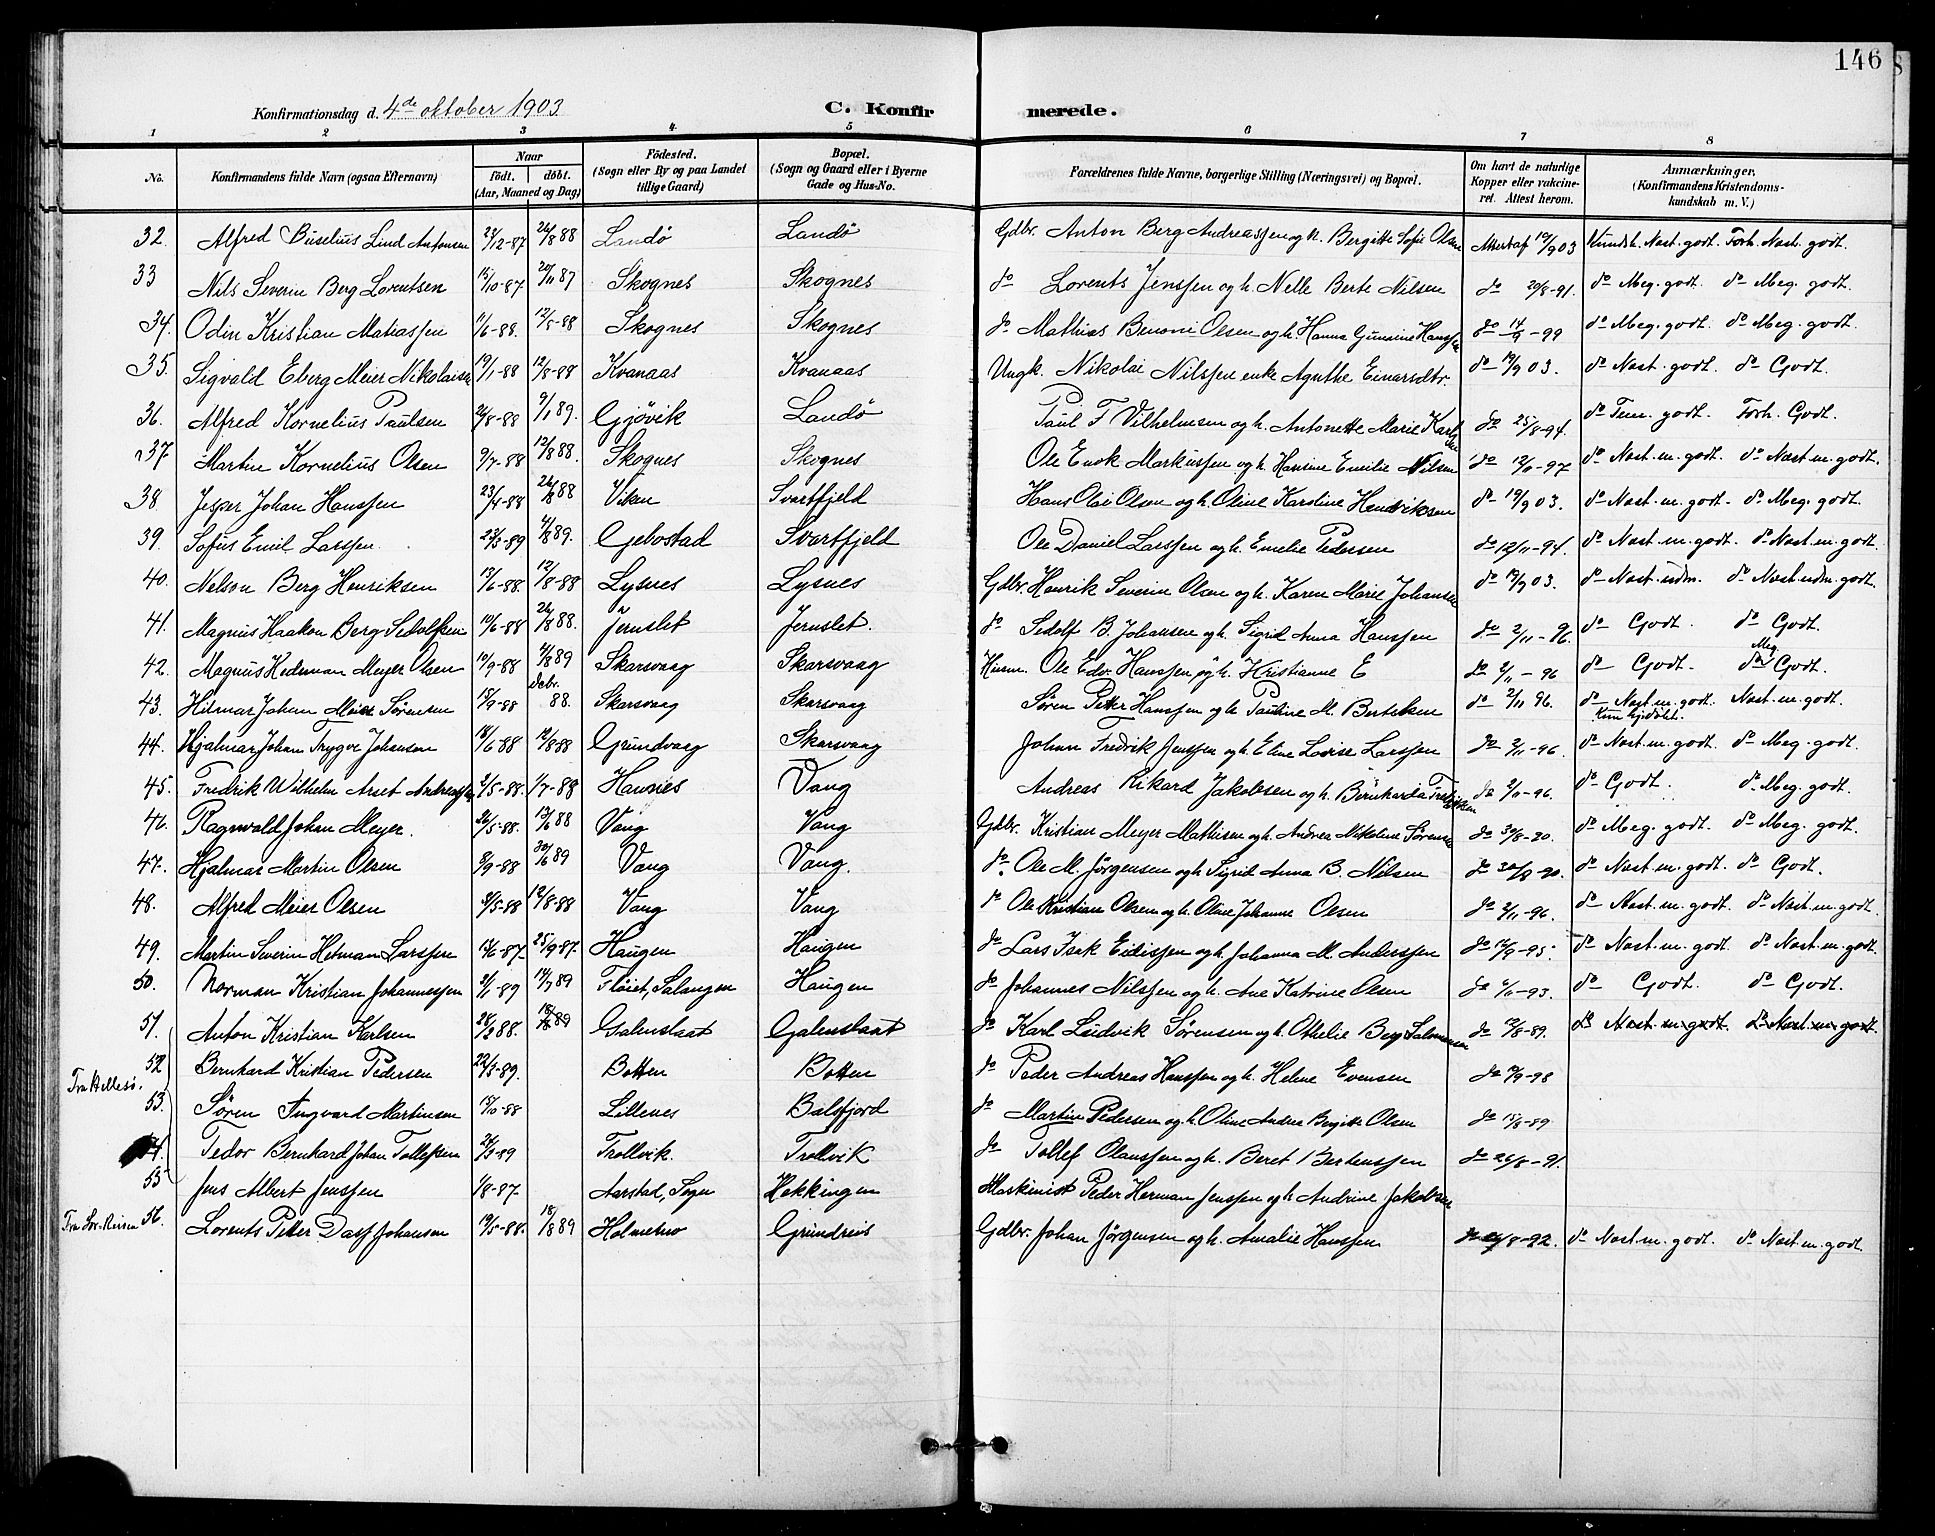 146
Konfirmationsdag d. 4de oktober 1903 C. Konfirmerede.
1 2 3 4 5 6 7 8
No. Konfirmandens fulde Navn (ogsaa Efternavn) Naar födt. döbt. (Aar, Maaned og Dag) Födested. (Sogn eller By og paa Landet tillige Gaard) Bopæl. (Sogn og Gaard eller i Byerne Gade og Hus-No. Forældrenes fulde Navne, borgerlige Stilling (Næringsvei) og Bopæl. Om havt de naturlige Kopper eller vakcineret. Attest herom. Anmærkninger, (Konfirmandens Kristendomskundskab m. V.)
32. Alfred Buselius Lind Antonsen 24/12-87 26/8 88 Landö Landö Gdbr. Anton Berg Andreassen og h. Bergitte Sofie Olsen Attest af 19/9 03 Kundsk. Nost. godt. Forh. Nost. godt.
33 Nils Severin Berg Lorentsen 15/10-87 20/11 87 Skognes Skognes do Lorents Jenssen og h. Nelle Berte Nilsen do 20/8-91. do Meg. godt. do Meg. godt.
34. Odin Kristian Matiassen 11/6-88. 12/8-88 Skognes Skognes do Mathias Benoni Olsen og h. Hanna Gurine Hanssen do 14/9-99 do Meg. godt. do Meg. godt.
35. Sigvald Eberg Meier Nikolaisen 19/1-88 12/8-88 Kvanaas Kvanaas Ungk. Nikolai Nilssen enke Agathe Einarsdtr. do 19/9 03. do Nost. godt. do Godt.
36. Alfred Kornelius Paulsen 26/8-88 9/1 89. Gjövik Landö Paul F Vilhelmsen og h. Antonette Marie Karlsen do 25/8-94. do Tem. godt. Forh. Godt.
37 Martin Kornelius Olsen 9/7-88 12/8 88. Skognes Skognes Ole Enok Markussen og h. Hansine Emilie Nilsen do 12/11-97 do Nost. m. godt. do Nost. m. godt.
38 Jesper Johan Hanssen 23/4-88 26/8 88 Viken Svartfjeld Hans Olai Olsen og h. Oline Karoline Hendriksen do 19/9 03. do Nost. m. godt. do Meg. godt.
39. Sofus Emil Larssen. 23/3-89 4/8 89. Gebostad Svartfjeld Ole Daniel Larssen og h. Emelie Pedersen do 12/11-94. do Nost. m. godt. do Nost. m. godt.
40. Nelson Berg Henriksen 13/6-88. 12/8-88 Lysnes Lysnes Gdbr. Henrik Severin Olsen og h. Karen Marie Johansen do 19/9 03. do Nost. udm. do Nost. udm. godt
41. Magnus Haakon Berg Sedolfsen 10/6-88 26/8 88. Jernslet Jernslet. do Sedolf B. Johansen og h. Sigrid Anna Hanssen do 2/11-96. do Godt. do Godt.
42. Magnus Hedeman Meyer Olsen 10/9-88 4/8 89 Skarsvaag Skarsvaag Husm. Ole Edv. Hanssen og h. Kristianne E do 2/11-96 do Godt. do Meg. Godt.
43. Hilmar Johan Meier Sörensen 15/9-88 Debr. 88. Skarsvaag Skarsvaag Sören Petter Hanssen og h. Pauline M. Bertelsen do 2/11 96. do Nost. m. godt. Kun hjdöbt. Nost. m. godt.
44. Hjalmar Johan Trygve Johansen 18/6-88 12/8-88 Grundvaag Skarsvaag Johan Fredrik Jenssen og h. Eline Lovise Larssen do 2/11-96. do Nost. m. godt. do Meg. godt.
45. Fredrik Wilhelm Arnt Andreassen 2/5-88. 1/7-88 Havnes Vang Andreas Rikard Jakobsen og h. Bernharda Fredriksen do 2/11-96. do Godt. do Meg. godt.
46. Ragnvald Johan Meyer. 26/5-88. 13/6 88 Vang Vang Gdbr. Kristian Meyer Mathisen og h. Andrea Nikoline Sörensen do 30/8-90. do Meg. godt. do Meg. godt.
47. Hjalmar Martin Olsen 8/9-88 30/6 89 Vang Vang. do Ole M. Jörgensen og h. Sigrid Anna B. Nilsen do 30/8-90. do Nost. m. godt. do Godt.
48. Alfred Meier Olsen 3/5-88 12/8-88 Vang Vang do Ole Kristian Olsen og h. Oline Johanne Olsen do 2/11-96. do Nost. m. godt. do Nost. m. godt.
49. Martin Severin Hetman Larssen 15/6-87 25/9 87. Haugen Haugen do Lars Isak Eidissen og h. Johanna M. Anderssen do 12/9-95. do Nost. m. godt. do Nost. m. godt
50. Norman Kristian Johannessen 2/1-89 14/7 89 Flöiet, Salangen Haugen do Johannes Nilssen og h. Ane Katrine Olsen do 6/11-93. do Godt. do Godt.
51. Anton Kristian Karlsen 28/2 88. 18/8 89 Galenslaat Galenslaat do Karl Ludvik Sörensen og h. Othelie Berg Salomonsen do 12/8-89. do Nost. m. godt. do Nost. m. godt.
52 Bernhard Kristian Pedersen 22/3-89. Botten Botten do Peder Andreas Hanssen og h. Helene Evensen do 19/9-98
Fra Hillesö.
53. Sören Ingvard Martinsen 15/10-88 Lillenes Balsfjord do Martin Pedersen og h. Oline Andrea Bergitte Olsen do 15/8-89
54. Tedor Bernhard Johan Tollefsen 24/3-89 Trollvik. Trollvik do Tollef Olaussen og h. Beret Bertenssen do 26/8-91.
55 Jens Albert Jenssen 1/8-87. Aarstad, Sogn Hekkingen Maskinist Peder Herman Jenssen og h. Andrine Jakobsen
Fra Sör-Reisen 56. Lorents Petter Dass Johansen 19/5-88. 18/8 89 Holmebo Grundreis Gdbr. Johan Jörgensen og h. Amalie Hanssen do 26/8-92. do Nost. m. godt. do Nost. m. godt.